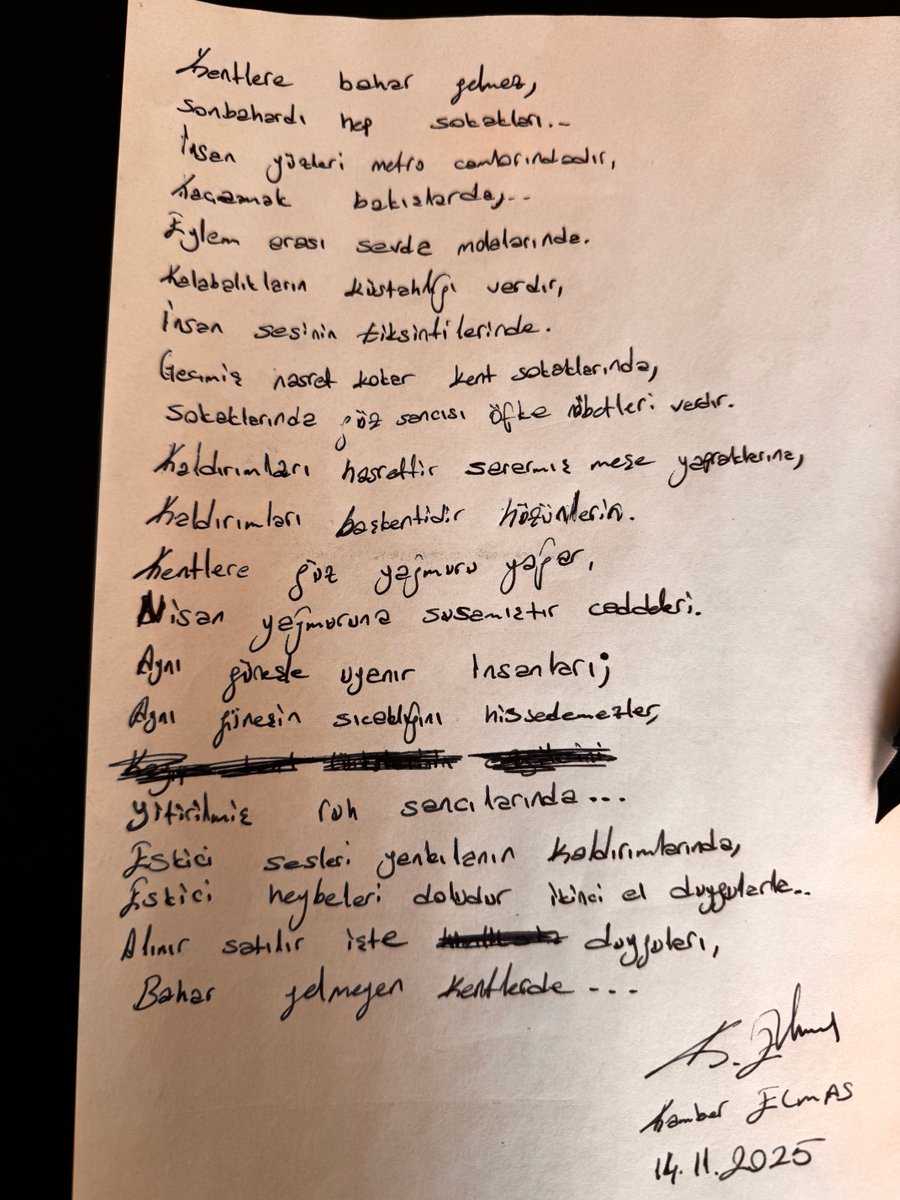 Kentlere bahar gelmez,
Sonbahardı hep sokakları...
İnsan yüzleri metro camlarındadır,
Kaçamak bakışlarda,...
Eylem arası sevda molalarında.
Kalabalıkların küstahlığı vardır,
İnsan sesinin tiksintilerinde.
Geçmiş hasret kokar kent sokaklarında,
Sokaklarında göz sancısı öfke nöbetleri vardır.
Kaldırımları hasrettir sararmış meşe yapraklarına,
Kaldırımları başkentidir hüzünlerin.
Kentlere güz yağmuru yağar,
Nisan yağmuruna susamıştır caddeleri.
Aynı güneşle uyanır insanları;
Aynı güneşin sıcaklığını hissedemezler,
Yitirilmiş ruh sancılarında...
Eskici sesleri yankılanın kaldırımlarında,
Eskici heybeleri doludur ikinci el duygularla..
Alınır satılır işte duyguları,
Bahar gelmeyen kentlerde...
Kamber ELMAS
14.11.2025